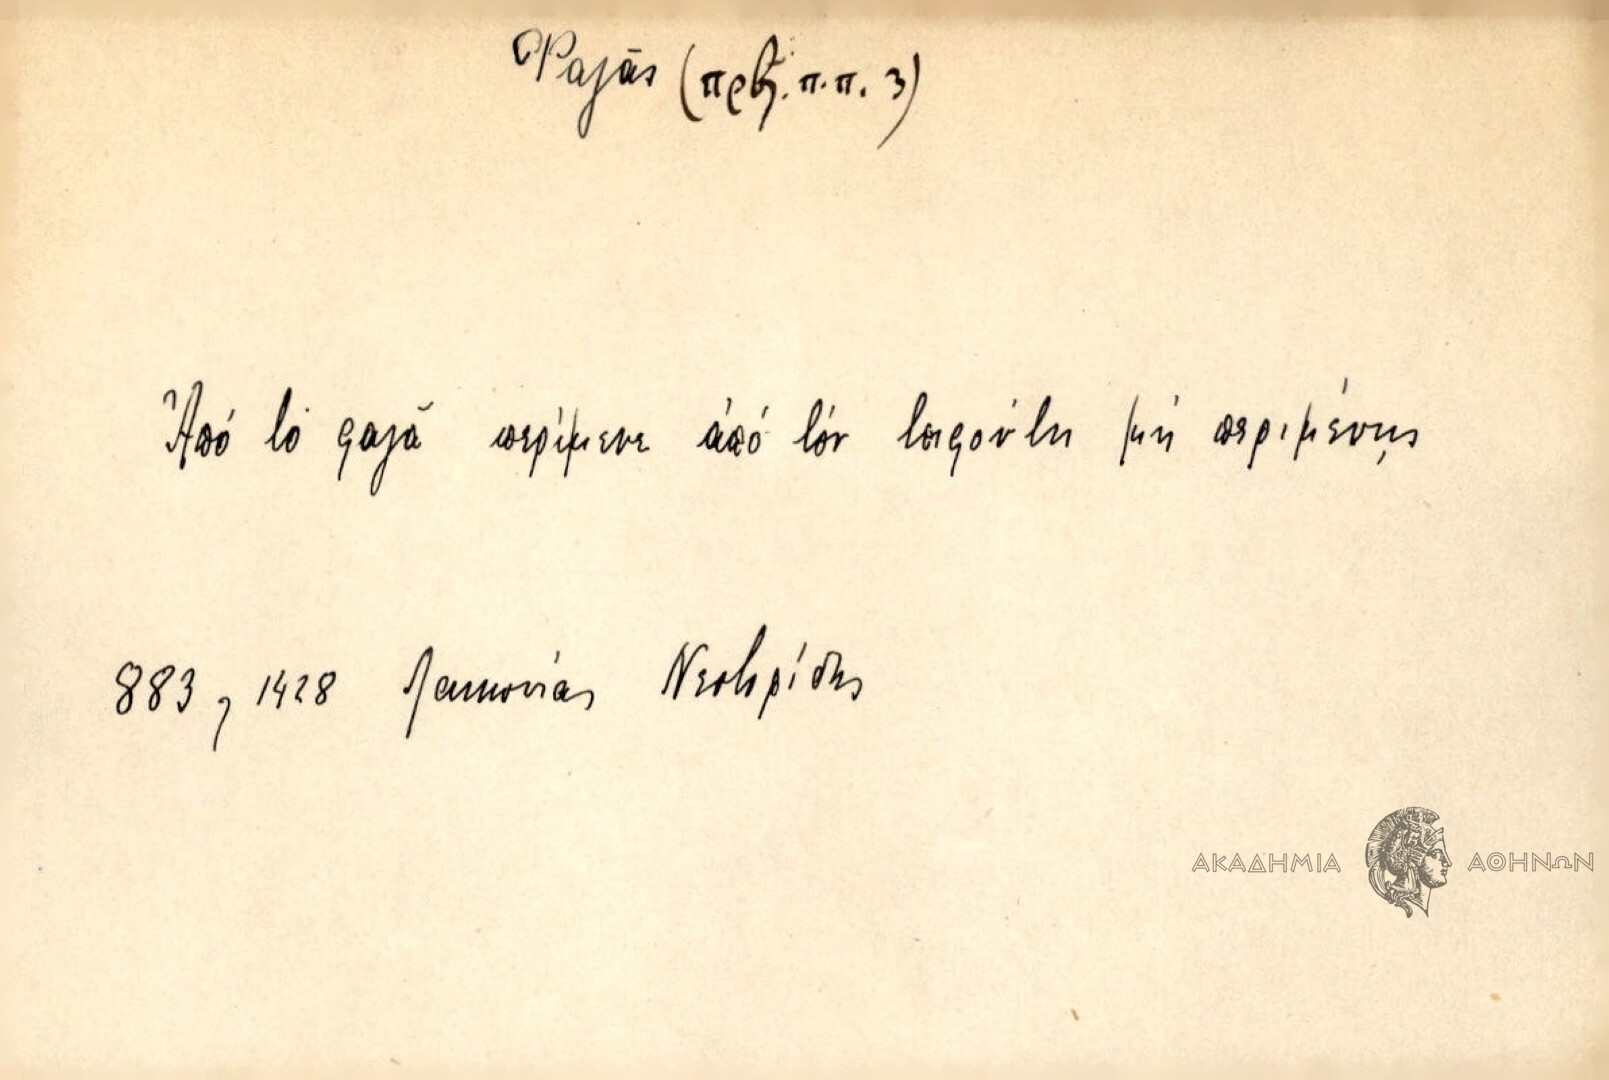 Φαγᾶς (πρβ. π.π. 3)
Ἀπό τό φαγᾶ περίμενε ἀπό τόν τσιφούτη μή περιμένῃς
883, 1428 Λακωνίας Νεστορίδης
ΑΚΑΔΗΜΙΑ ΑΘΗΝΩΝ